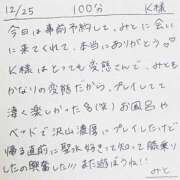 12/25 100分 K様
今日は事前予約して、みとに会い
に来てくれて、本当にありがとう♡
K様はとっても変態さんで、みとも
かなりの変態だから、プレイしてて
凄く楽しかった多(笑)お風呂や
ベッドで沢山濃厚にプレイしたけど
帰る直前に聖水好きって知って勝乗り
したの興奮した!!!また遊ぼうね!!
みと